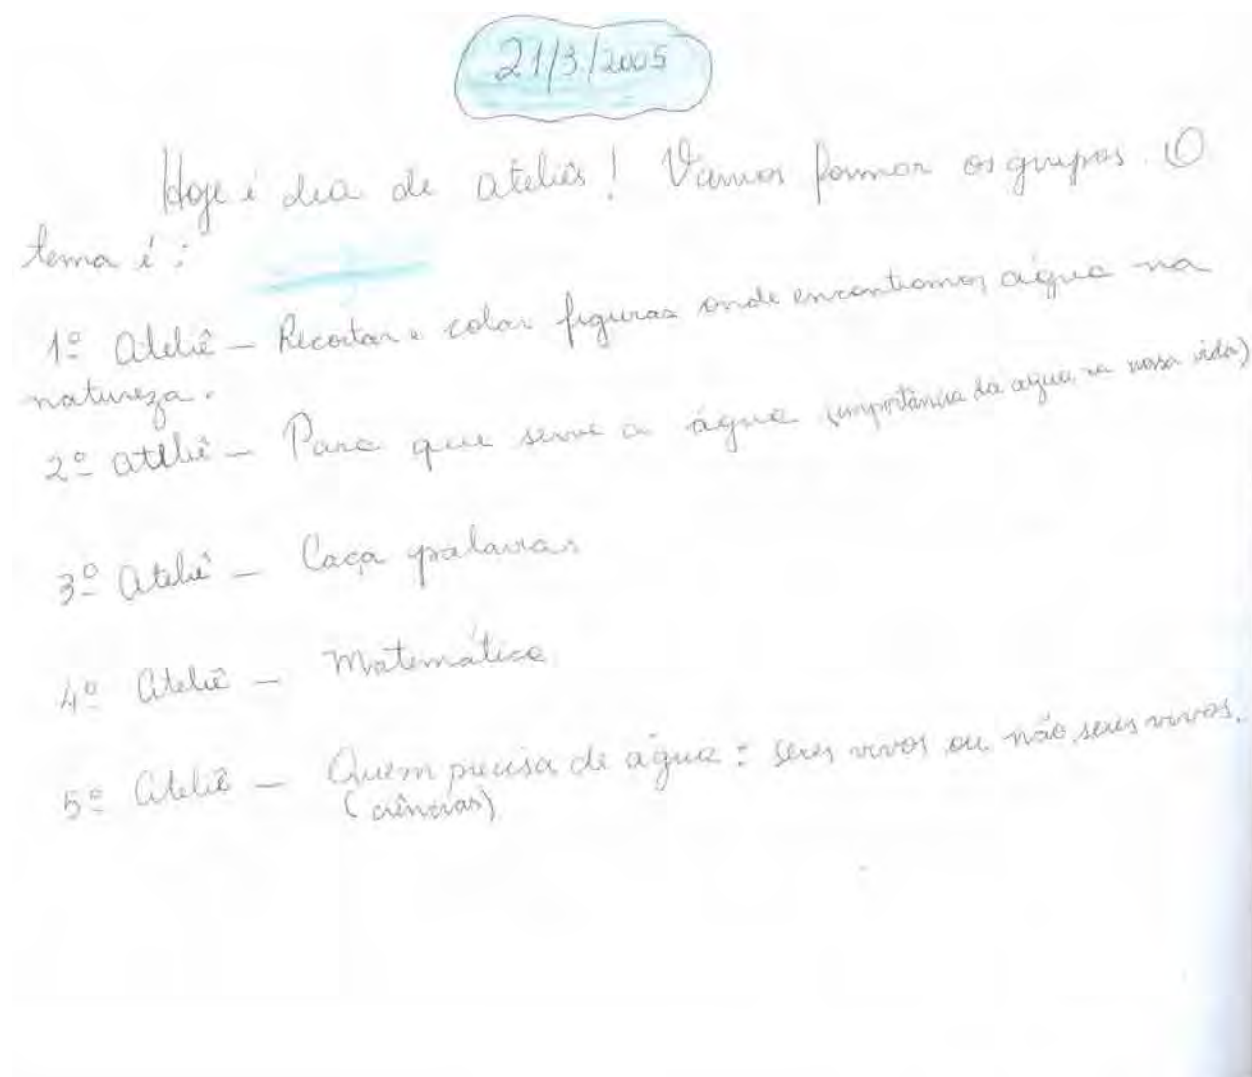 21/3/2005
Hoje é dia de ateliês! Vamos formar os grupos. O
tema é:
1º Ateliê - Recortar e colar figuras onde encontramos água na
natureza.
2º ateliê - Para que serve a água (importância da água na nossa vida)
3º Ateliê - Caça palavras
4º Ateliê - Matemática
5º Ateliê - Quem precisa de água: seres vivos ou não seres vivos.
(ciências)